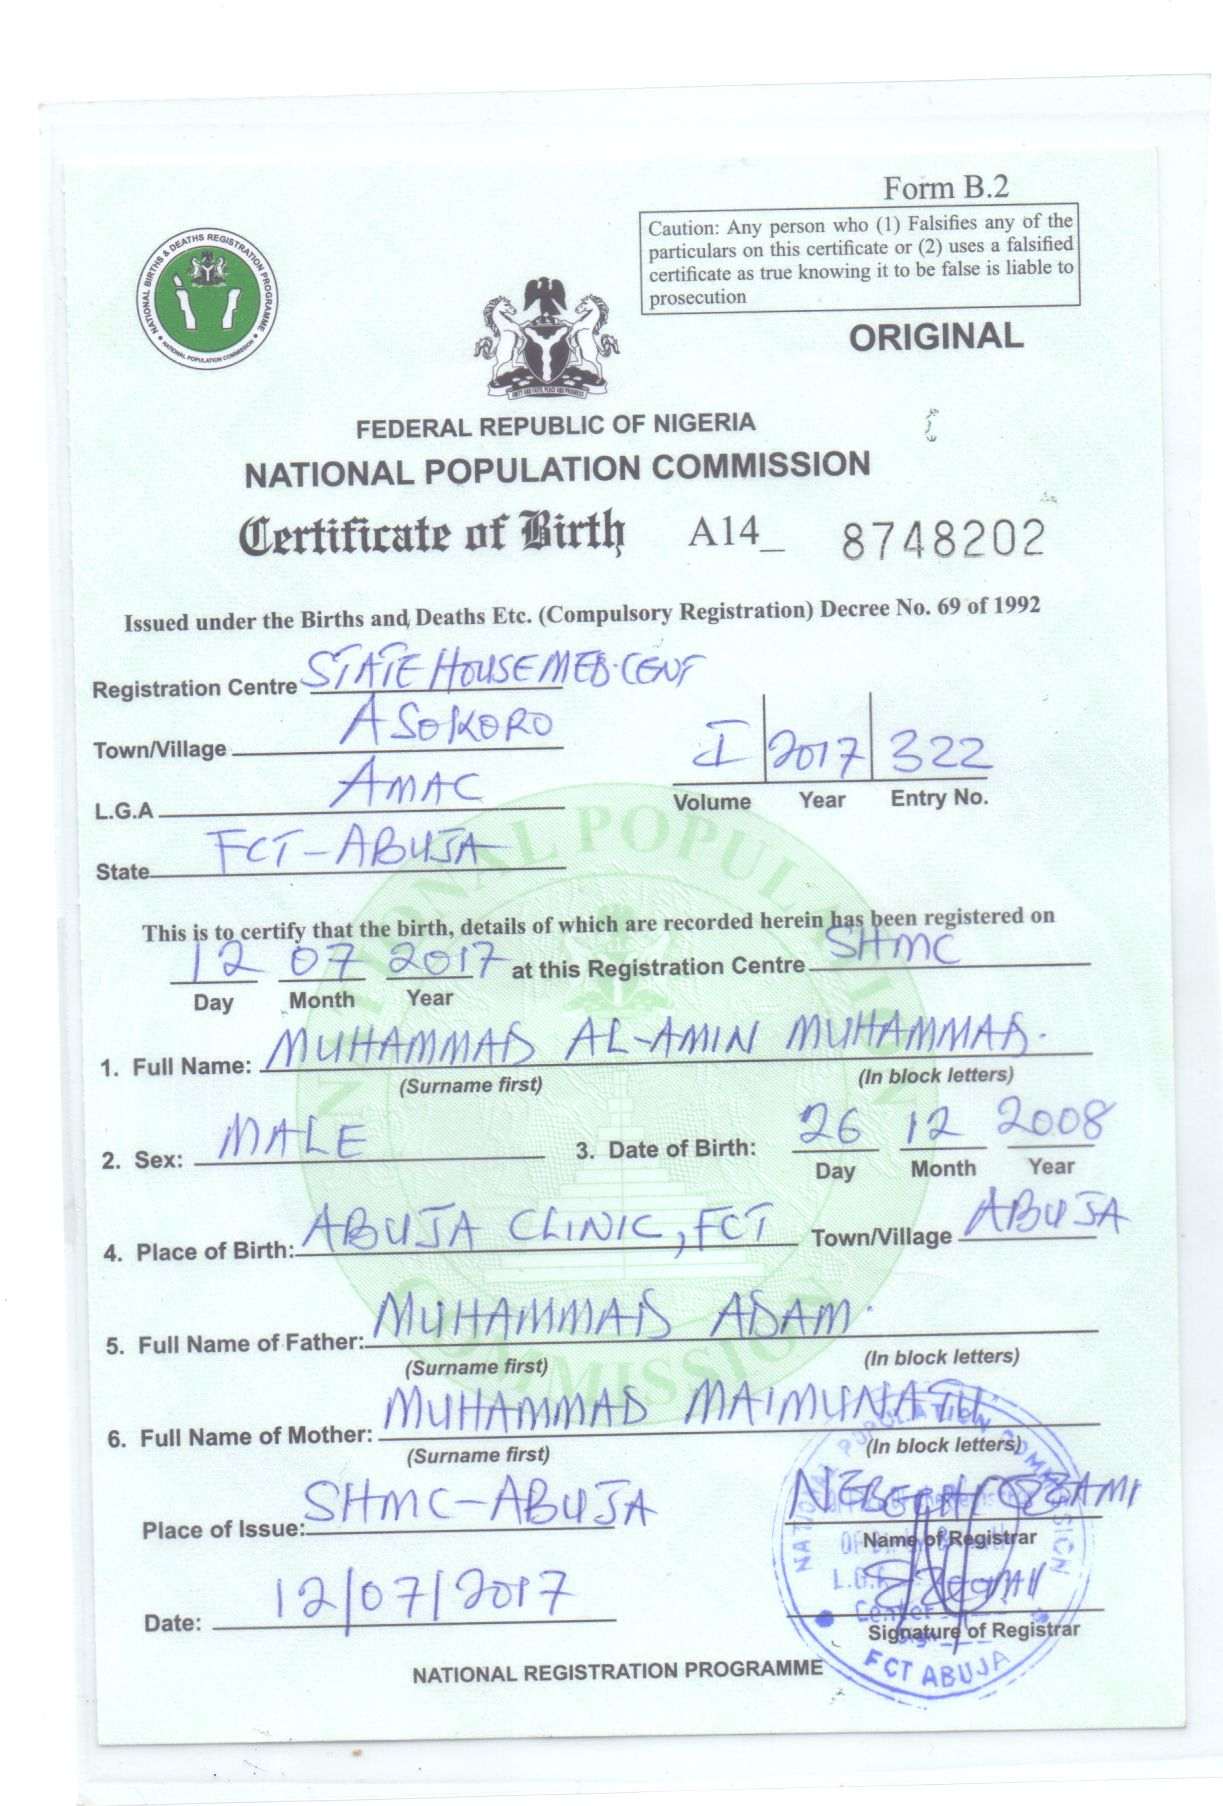 Form B.2
Caution: Any person who (1) Falsifies any of the
particulars on this certificate or (2) uses a falsified
certificate as true knowing it to be false is liable to
prosecution
NATIONAL BIRTHS & DEATHS REGISTRATION PROGRAMME
NATIONAL POPULATION COMMISSION
ORIGINAL
FEDERAL REPUBLIC OF NIGERIA
NATIONAL POPULATION COMMISSION
Certificate of Birth A14_ 8748202
Issued under the Births and Deaths Etc. (Compulsory Registration) Decree No. 69 of 1992
Registration Centre STATE HOUSE MED. CENT
Town/Village ASOKORO
L.G.A AMAC
I 2017 322
Volume Year Entry No.
State FCT-ABUJA
This is to certify that the birth, details of which are recorded herein has been registered on
12 07 2017 at this Registration Centre SHMC
Day Month Year
1. Full Name: MUHAMMAD AL-AMIN MUHAMMAD.
(Surname first) (In block letters)
2. Sex: MALE 3. Date of Birth: 26 12 2008
Day Month Year
4. Place of Birth: ABUJA CLINIC, FCT Town/Village ABUJA
5. Full Name of Father: MUHAMMAD ADAM.
(Surname first) (In block letters)
6. Full Name of Mother: MUHAMMAD MAIMUNATU
(Surname first) (In block letters)
Place of Issue: SHMC-ABUJA
Name of Registrar
Date: 12/07/2017
Signature of Registrar
NATIONAL REGISTRATION PROGRAMME
NATIONAL POPULATION COMMISSION
FCT ABUJA